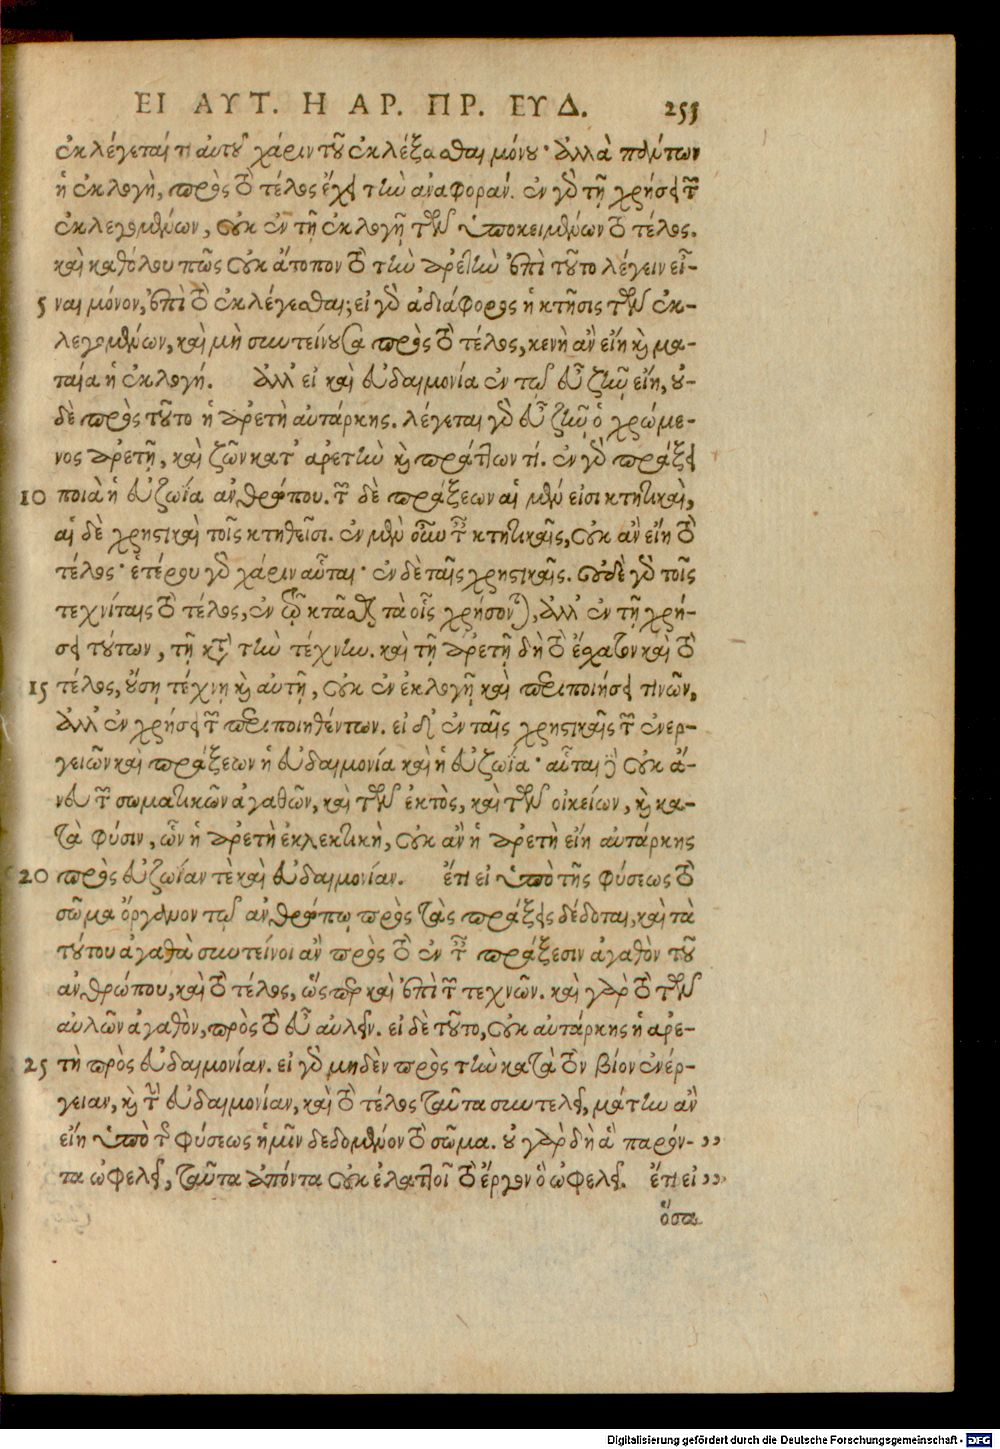 ΕΙ ΑΥΤ. Η ΑΡ. ΠΡ. ΕΥΔ. 255
ἐκλέγεται τι αὐτοῦ χάριν τοῦ ἐκλέξασθαι μόνου· ἀλλὰ πάντων
ἡ ἐκλογὴ, πρὸς τὸ τέλος ἔχει τὴν ἀναφοράν. ἐν γὰρ τῇ χρήσει τῶν
ἐκλεγομένων, οὐκ ἐν τῇ ἐκλογῇ τῶν ὑποκειμένων τὸ τέλος.
καὶ καθόλου πῶς οὐκ ἄτοπον τὸ τὴν ἀρετὴν ἐπὶ τοῦτο λέγειν εἶ-
5 ναι μόνον, ἐπὶ τὸ ἐκλέγεσθαι; εἰ γὰρ ἀδιάφορος ἡ κτῆσις τῶν ἐκ-
λεγομένων, καὶ μὴ συντείνουσα πρὸς τὸ τέλος, κενὴ ἂν εἴη καὶ μα-
ταία ἡ ἐκλογή. ἀλλ' εἰ καὶ εὐδαιμονία ἐν τῷ εὖ ζῆν εἴη, οὐ-
δὲ πρὸς τοῦτο ἡ ἀρετὴ αὐτάρκης. λέγεται γὰρ εὖ ζῆν ὁ χρώμε-
νος ἀρετῇ, καὶ ζῶν κατ' ἀρετὴν καὶ πράττων τί. ἐν γὰρ πράξει
10 ποιὰ ἡ εὐζωΐα ἀνθρώπου. τῶν δὲ πράξεων αἱ μέν εἰσι κτητικαὶ,
αἱ δὲ χρηστικαὶ τοῖς κτηθεῖσι. ἐν μὲν οὖν ταῖς κτητικαῖς, οὐκ ἂν εἴη τὸ
τέλος· ἑτέρου γὰρ χάριν αὗται· ἐν δὲ ταῖς χρηστικαῖς. οὐδὲ γὰρ τοῖς
τεχνίταις τὸ τέλος, ἐν τῷ κτᾶσθαι τὰ οἷς χρήσονται, ἀλλ' ἐν τῇ χρή-
σει τούτων, τῇ κατὰ τὴν τέχνην. καὶ τῇ ἀρετῇ δὴ τὸ ἔσχατον καὶ τὸ
15 τέλος, οὔσῃ τέχνῃ καὶ αὐτῇ, οὐκ ἐν ἐκλογῇ καὶ περιποιήσει τινῶν,
ἀλλ' ἐν χρήσει τῶν περιποιηθέντων. εἰ δ' ἐν ταῖς χρηστικαῖς τῶν ἐνερ-
γειῶν καὶ πράξεων ἡ εὐδαιμονία καὶ ἡ εὐζωΐα· αὗται δὲ οὐκ ἄ-
νευ τῶν σωματικῶν ἀγαθῶν, καὶ τῶν ἐκτὸς, καὶ τῶν οἰκείων, καὶ κα-
τὰ φύσιν, ὧν ἡ ἀρετὴ ἐκλεκτικὴ, οὐκ ἂν ἡ ἀρετὴ εἴη αὐτάρκης
20 πρὸς εὐζωΐαν τὲ καὶ εὐδαιμονίαν. ἔτι εἰ ὑπὸ τῆς φύσεως τὸ
σῶμα ὄργανον τῷ ἀνθρώπῳ πρὸς τὰς πράξεις δέδοται, καὶ τὰ
τούτου ἀγαθὰ συντείνοι ἂν πρὸς τὸ ἐν ταῖς πράξεσιν ἀγαθὸν τοῦ
ἀνθρώπου, καὶ τὸ τέλος, ὥς περ καὶ ἐπὶ τῶν τεχνῶν. καὶ γὰρ τὸ τῶν
αὐλῶν ἀγαθὸν, πρὸς τὸ εὖ αὐλεῖν. εἰ δὲ τοῦτο, οὐκ αὐτάρκης ἡ ἀρε-
25 τὴ πρὸς εὐδαιμονίαν. εἰ γὰρ μηδὲν πρὸς τὴν κατὰ τὸν βίον ἐνέρ-
γειαν, καὶ τὴν εὐδαιμονίαν, καὶ τὸ τέλος ταῦτα συντελεῖ, μάτην ἂν
εἴη ὑπὸ τῆς φύσεως ἡμῖν δεδομένον τὸ σῶμα. οὐ γὰρ δὴ ἃ παρόν- ,,
τα ὠφελεῖ, ταῦτα ἀπόντα οὐκ ἐλαττοῖ τὸ ἔργον ὃ ὠφελεῖ. ἔτι εἰ ,,
ὅσα
Digitalisierung gefördert durch die Deutsche Forschungsgemeinschaft - DFG